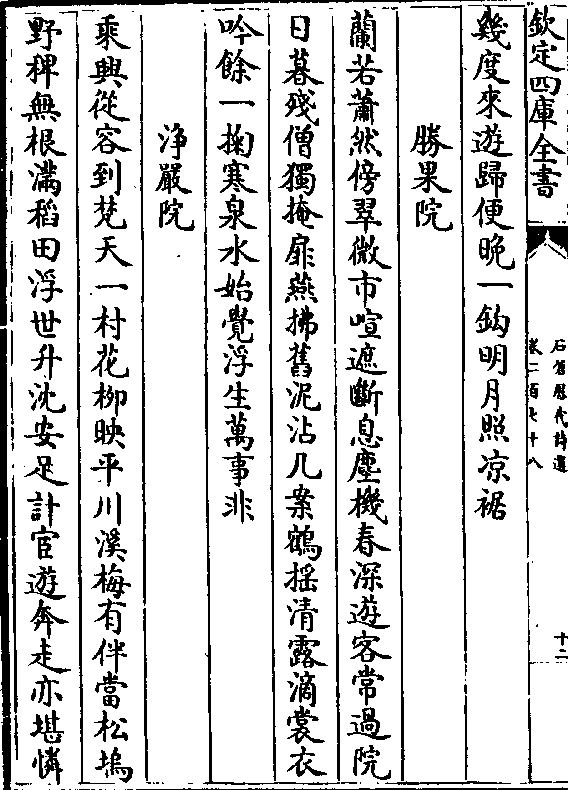 欽定四庫全書
石倉歷代詩選
卷二百七十八
十二
幾度來遊歸便晚一鈎明月照凉裾
勝果院
蘭若蕭然傍翠微市喧遮斷息塵機春深遊客常過院
日暮殘僧獨掩扉燕拂舊泥沾几案鶴揺清露滴裳衣
吟餘一掬寒泉水始覺浮生萬事非
浄嚴院
乘興從容到梵天一村花柳映平川溪梅有伴當松塢
野稗無根滿稻田浮世升沈安足計宦遊奔走亦堪憐